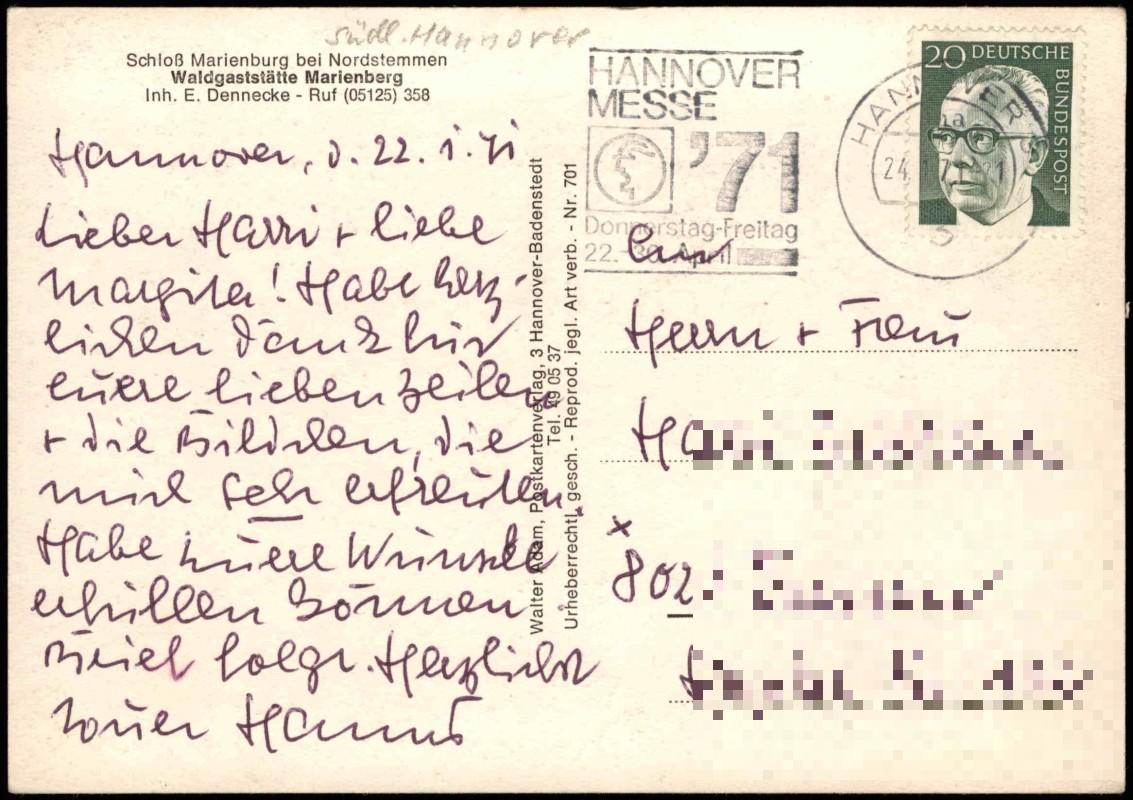 südl. Hannover
Schloß Marienburg bei Nordstemmen
Waldgaststätte Marienberg
Inh. E. Dennecke - Ruf (05125) 358
Hannover, d. 22. 1. 71
Lieber Harri + liebe
Margita! Habe herz-
lichen Dank für
euere lieben Zeilen
+ die Bildchen, die
mich sehr erfreuten.
Habe euere Wünsche
erfüllen können
Brief folgt. Herzlichst
euer Hanns
Walter Adam, Postkartenverlag, 3 Hannover-Badenstedt
Tel. 49 05 37
Urheberrechtl. gesch. - Reprod. jegl. Art verb. - Nr. 701
HANNOVER
MESSE
'71
Donnerstag-Freitag
22.-30. April
HANNOVER
24.
20 DEUTSCHE
BUNDESPOST
An
Herrn + Frau
802